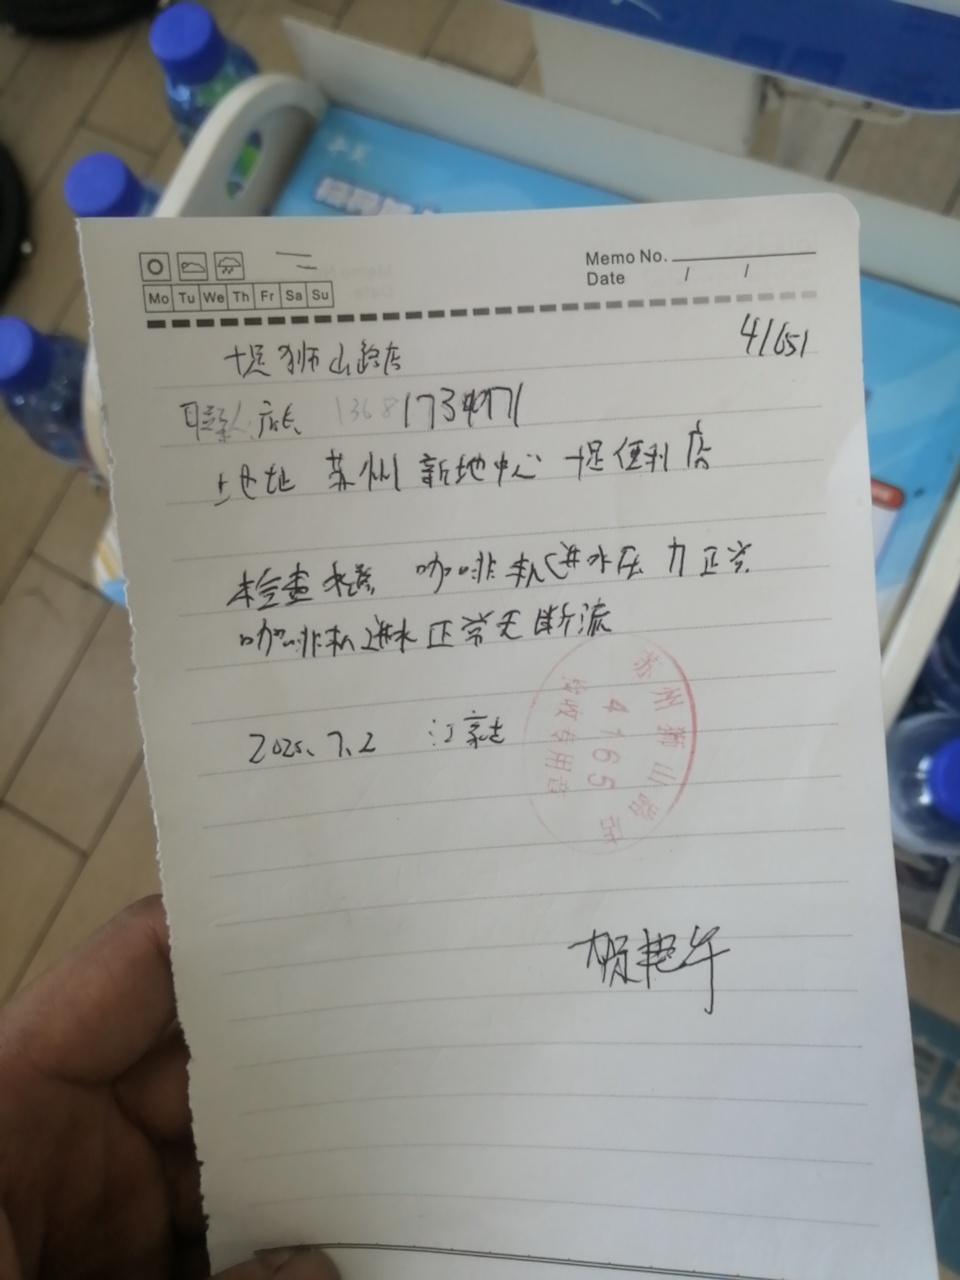 Memo No.
Date / /
Mo Tu We Th Fr Sa Su
41651
十足狮山路店
联系人 店长 1368173
地址 苏州 新地中心 十足便利店
检查 咖啡机进水压力正常
咖啡机进水正常无断流
2025.7.2 江家志
苏州狮山路店
4165
验收专用章
贺艳午